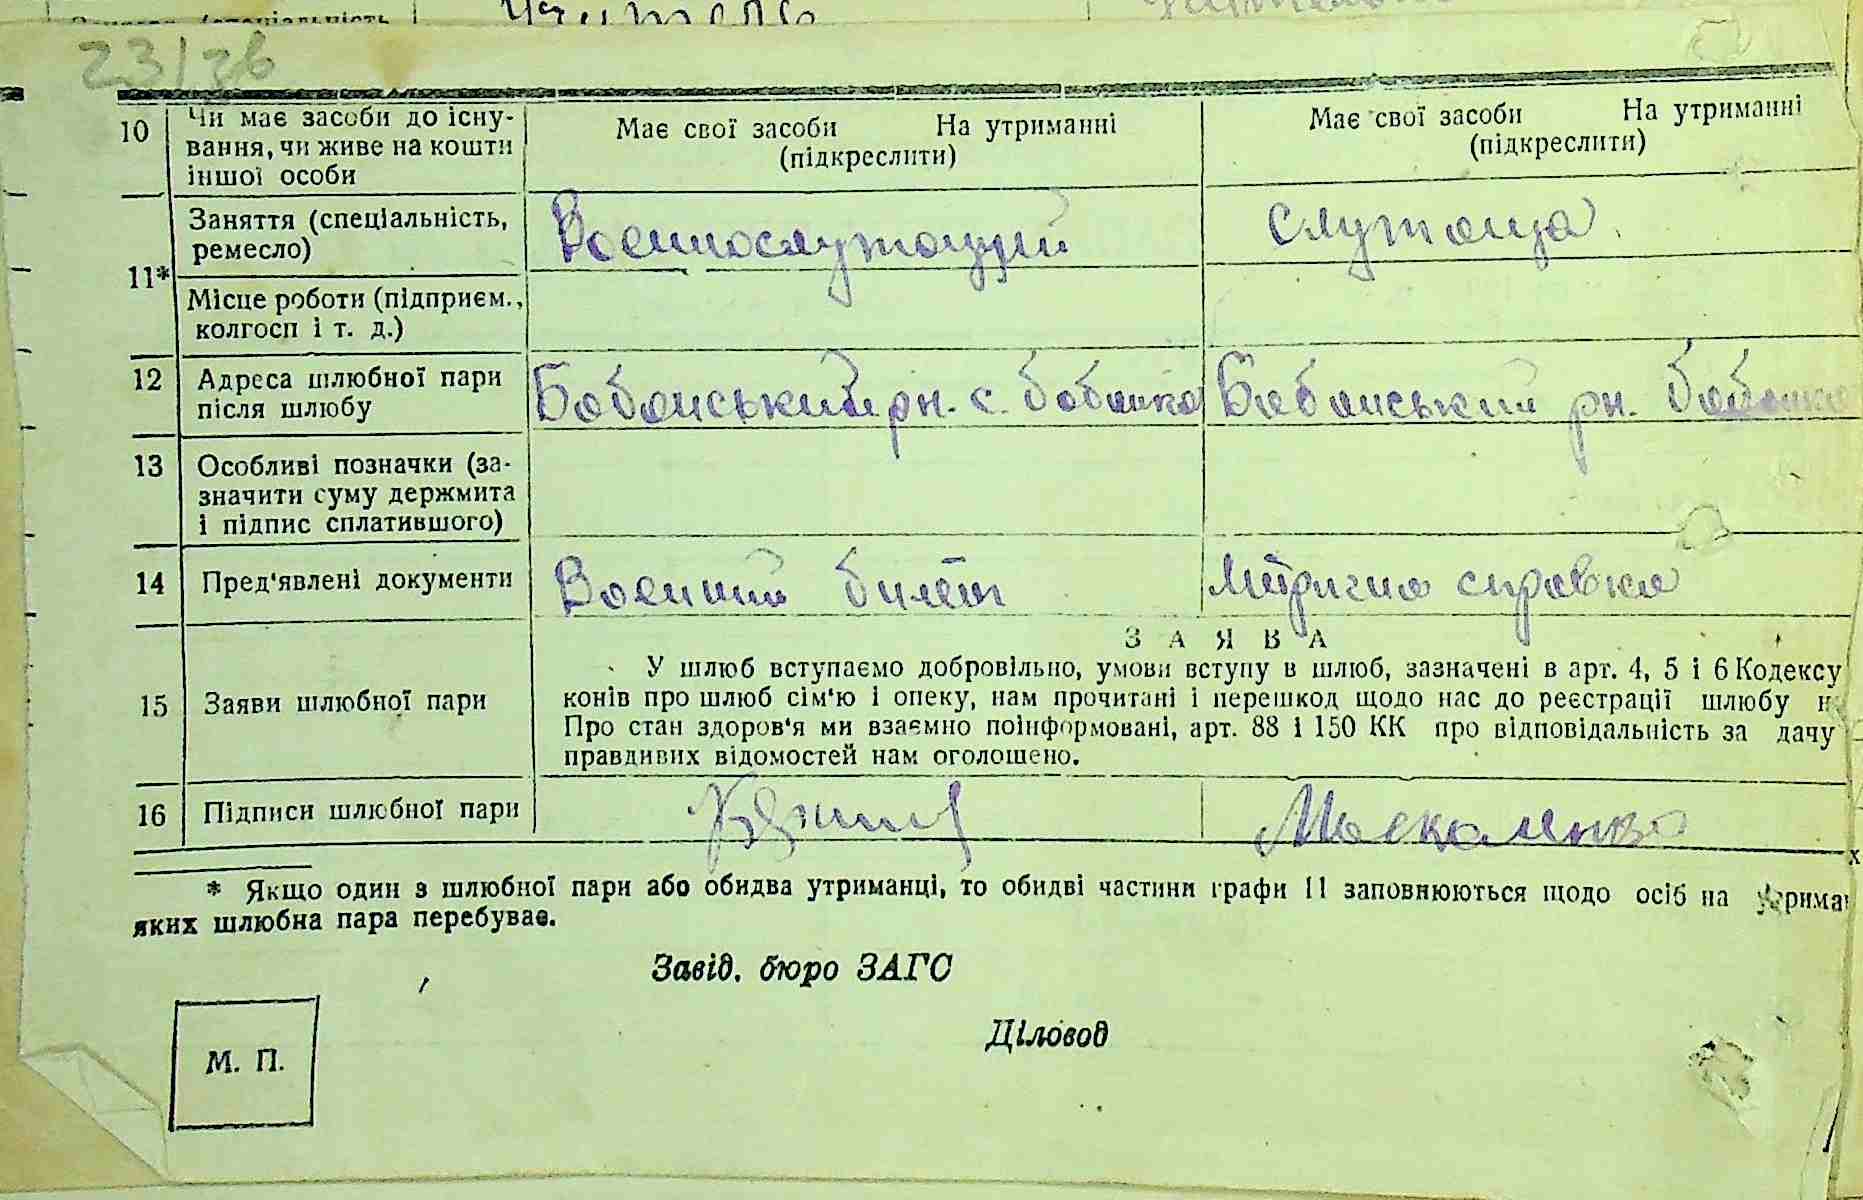 23/зв
10 Чи має засоби до існу-
вання, чи живе на кошти
іншої особи
Має свої засоби На утриманні
(підкреслити)
Має свої засоби На утриманні
(підкреслити)
11* Заняття (спеціальність,
ремесло)
Военнослужащий
служаща
Місце роботи (підприєм.,
колгосп і т. д.)
12 Адреса шлюбної пари
після шлюбу
Бабанський рн. с. Бабанка
Бабанський рн. Бабанка
13 Особливі позначки (за-
значити суму держмита
і підпис сплатившого)
14 Пред'явлені документи
Военний билет
Метрична справка
15 Заяви шлюбної пари
ЗАЯВА
У шлюб вступаємо добровільно, умови вступу в шлюб, зазначені в арт. 4, 5 і 6 Кодексу
конів про шлюб сім'ю і опеку, нам прочитані і перешкод щодо нас до реєстрації шлюбу н
Про стан здоров'я ми взаємно поінформовані, арт. 88 і 150 КК про відповідальність за дачу
правдивих відомостей нам оголошено.
16 Підписи шлюбної пари
Москаленко
* Якщо один з шлюбної пари або обидва утриманці, то обидві частини графи 11 заповнюються щодо осіб на утриман
яких шлюбна пара перебуває.
Завід. бюро ЗАГС
Діловод
М. П.